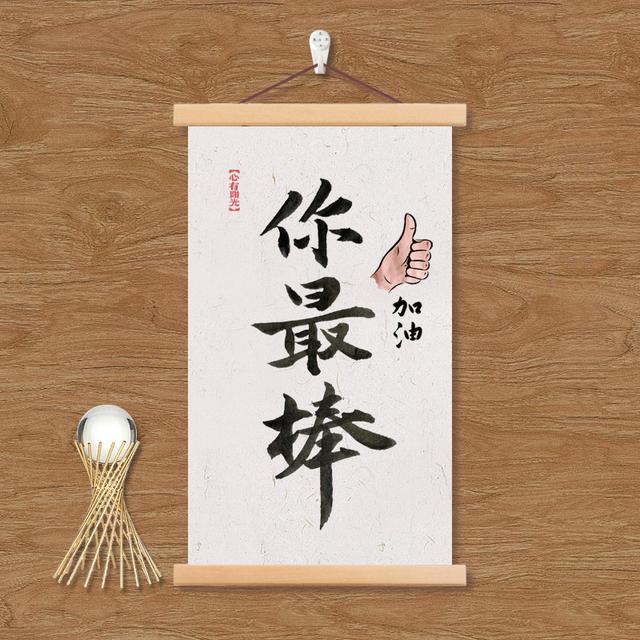 【心有阳光】
你最棒
加油